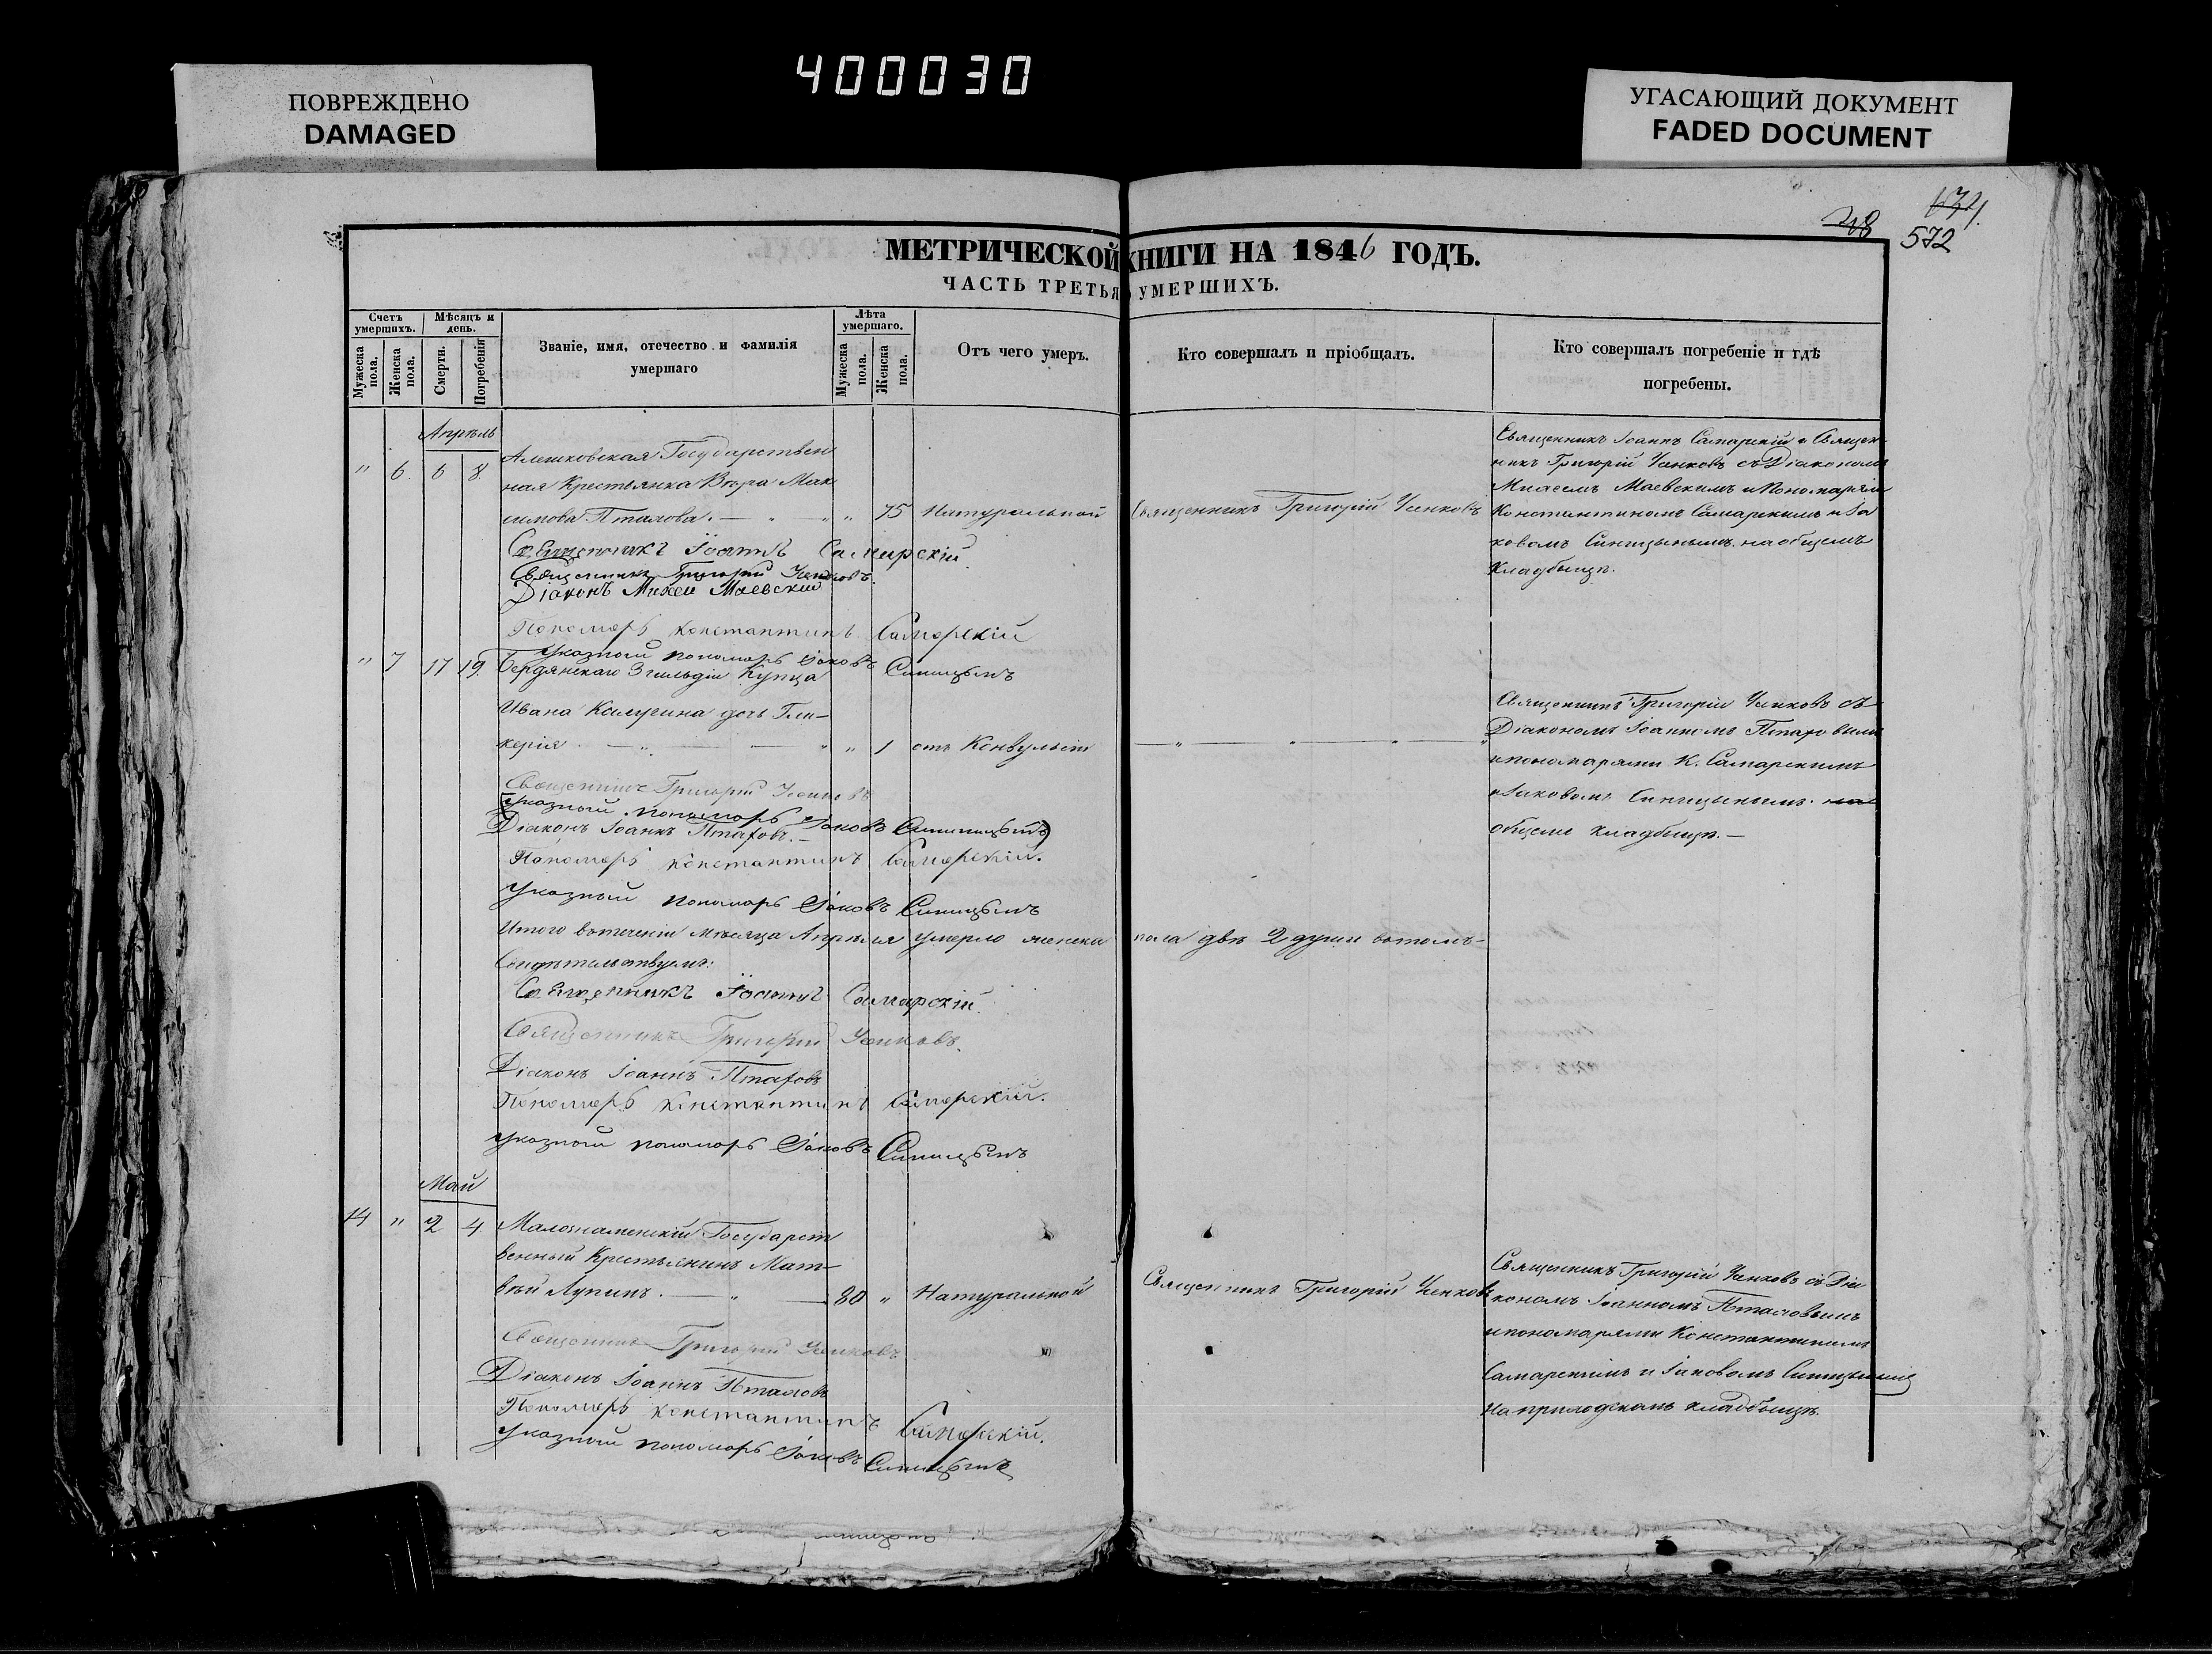 400030
ПОВРЕЖДЕНО
DAMAGED
УГАСАЮЩИЙ ДОКУМЕНТ
FADED DOCUMENT
572
МЕТРИЧЕСКОЙ КНИГИ НА 1846 ГОДЪ.
ЧАСТЬ ТРЕТЬЯ УМЕРШИХЪ.
Счетъ умершихъ.
Мужеска пола.
Женска пола.
Мѣсяцъ и день.
Смерти.
Погребенія
Званіе, имя, отечество и фамилія
умершаго
Лѣта умершаго.
Мужеска пола.
Женска пола.
Отъ чего умеръ.
Кто совершалъ и пріобщалъ.
Кто совершалъ погребеніе и гдѣ
погребены.
Апрѣль
" 6. 6 8.
Алешковская Государствен
ная Крестьянка Вѣра Мак
симова " " 75 Натуральной
Священникъ Григорій
Священникъ Іоаннъ Самарскій и Священ-
никъ Григорій съ Діакономъ
Михеемъ Маевскимъ и Пономарями
Константиномъ Самарскимъ и Іа
ковомъ Синицынымъ на общемъ
кладбищѣ.
Священникъ Іоаннъ Самарскій.
Священникъ Григорій
Діаконъ Михей Маевскій
Пономарь Константинъ Самарскій
Указный пономарь Іаковъ Синицынъ
" 7 17 19.
Бердянскаго 3 гильдіи Купца
Ивана Калугина дочь Гли-
керія " " 1 отъ Конвульсіи
Священникъ Григорій съ
Діакономъ Іоанномъ
и пономарями К. Самарскимъ
и Іаковомъ Синицынымъ на
общемъ кладбищѣ.—
Священникъ Григорій
Указный пономарь Іаковъ Синицынъ
Діаконъ Іоаннъ
Пономарь Константинъ Самарскій.
Указный пономарь Іаковъ Синицынъ
Итого втеченіи мѣсяца Апрѣля умерло женска пола двѣ 2 души вътомъ-
Свидѣтельствуемъ:
Священникъ Іоаннъ Самарскій.
Священникъ Григорій
Діаконъ Іоаннъ
Пономарь Константинъ Самарскій.
Указный пономарь Іаковъ Синицынъ
Май
14 " 2 4
Малознаменскій Государст
венный Крестьянинъ Мат-
вѣй Лупинъ. " 80 " Натуральной
Священникъ Григорій
Священникъ Григорій съ Діа
кономъ Іоанномъ
и пономарями Константиномъ
Самарскимъ и Іаковомъ Синицынымъ
на приходскомъ кладбищѣ.
Священникъ Григорій
Діаконъ Іоаннъ
Пономарь Константинъ Самарскій.
Указный пономарь Іаковъ Синицынъ